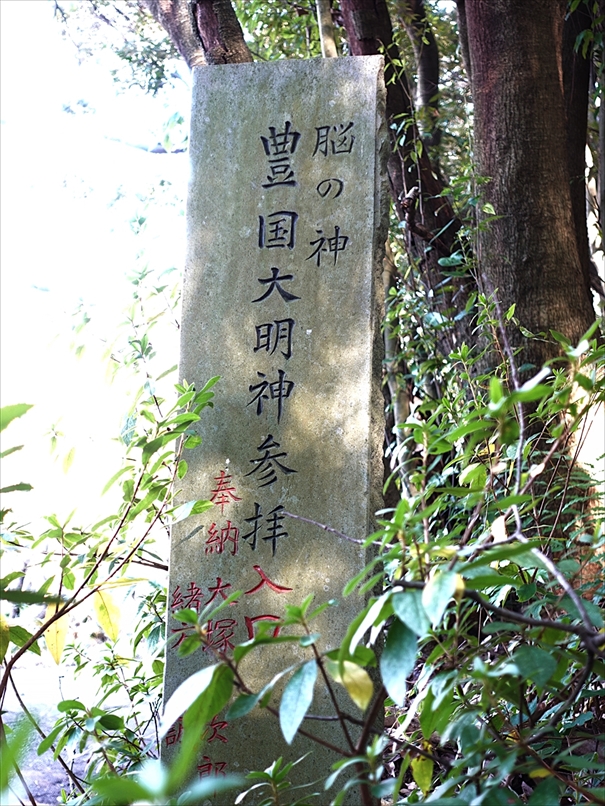 脳の神
豊国大明神参拝入口
奉納 大塚 次郎
緒方